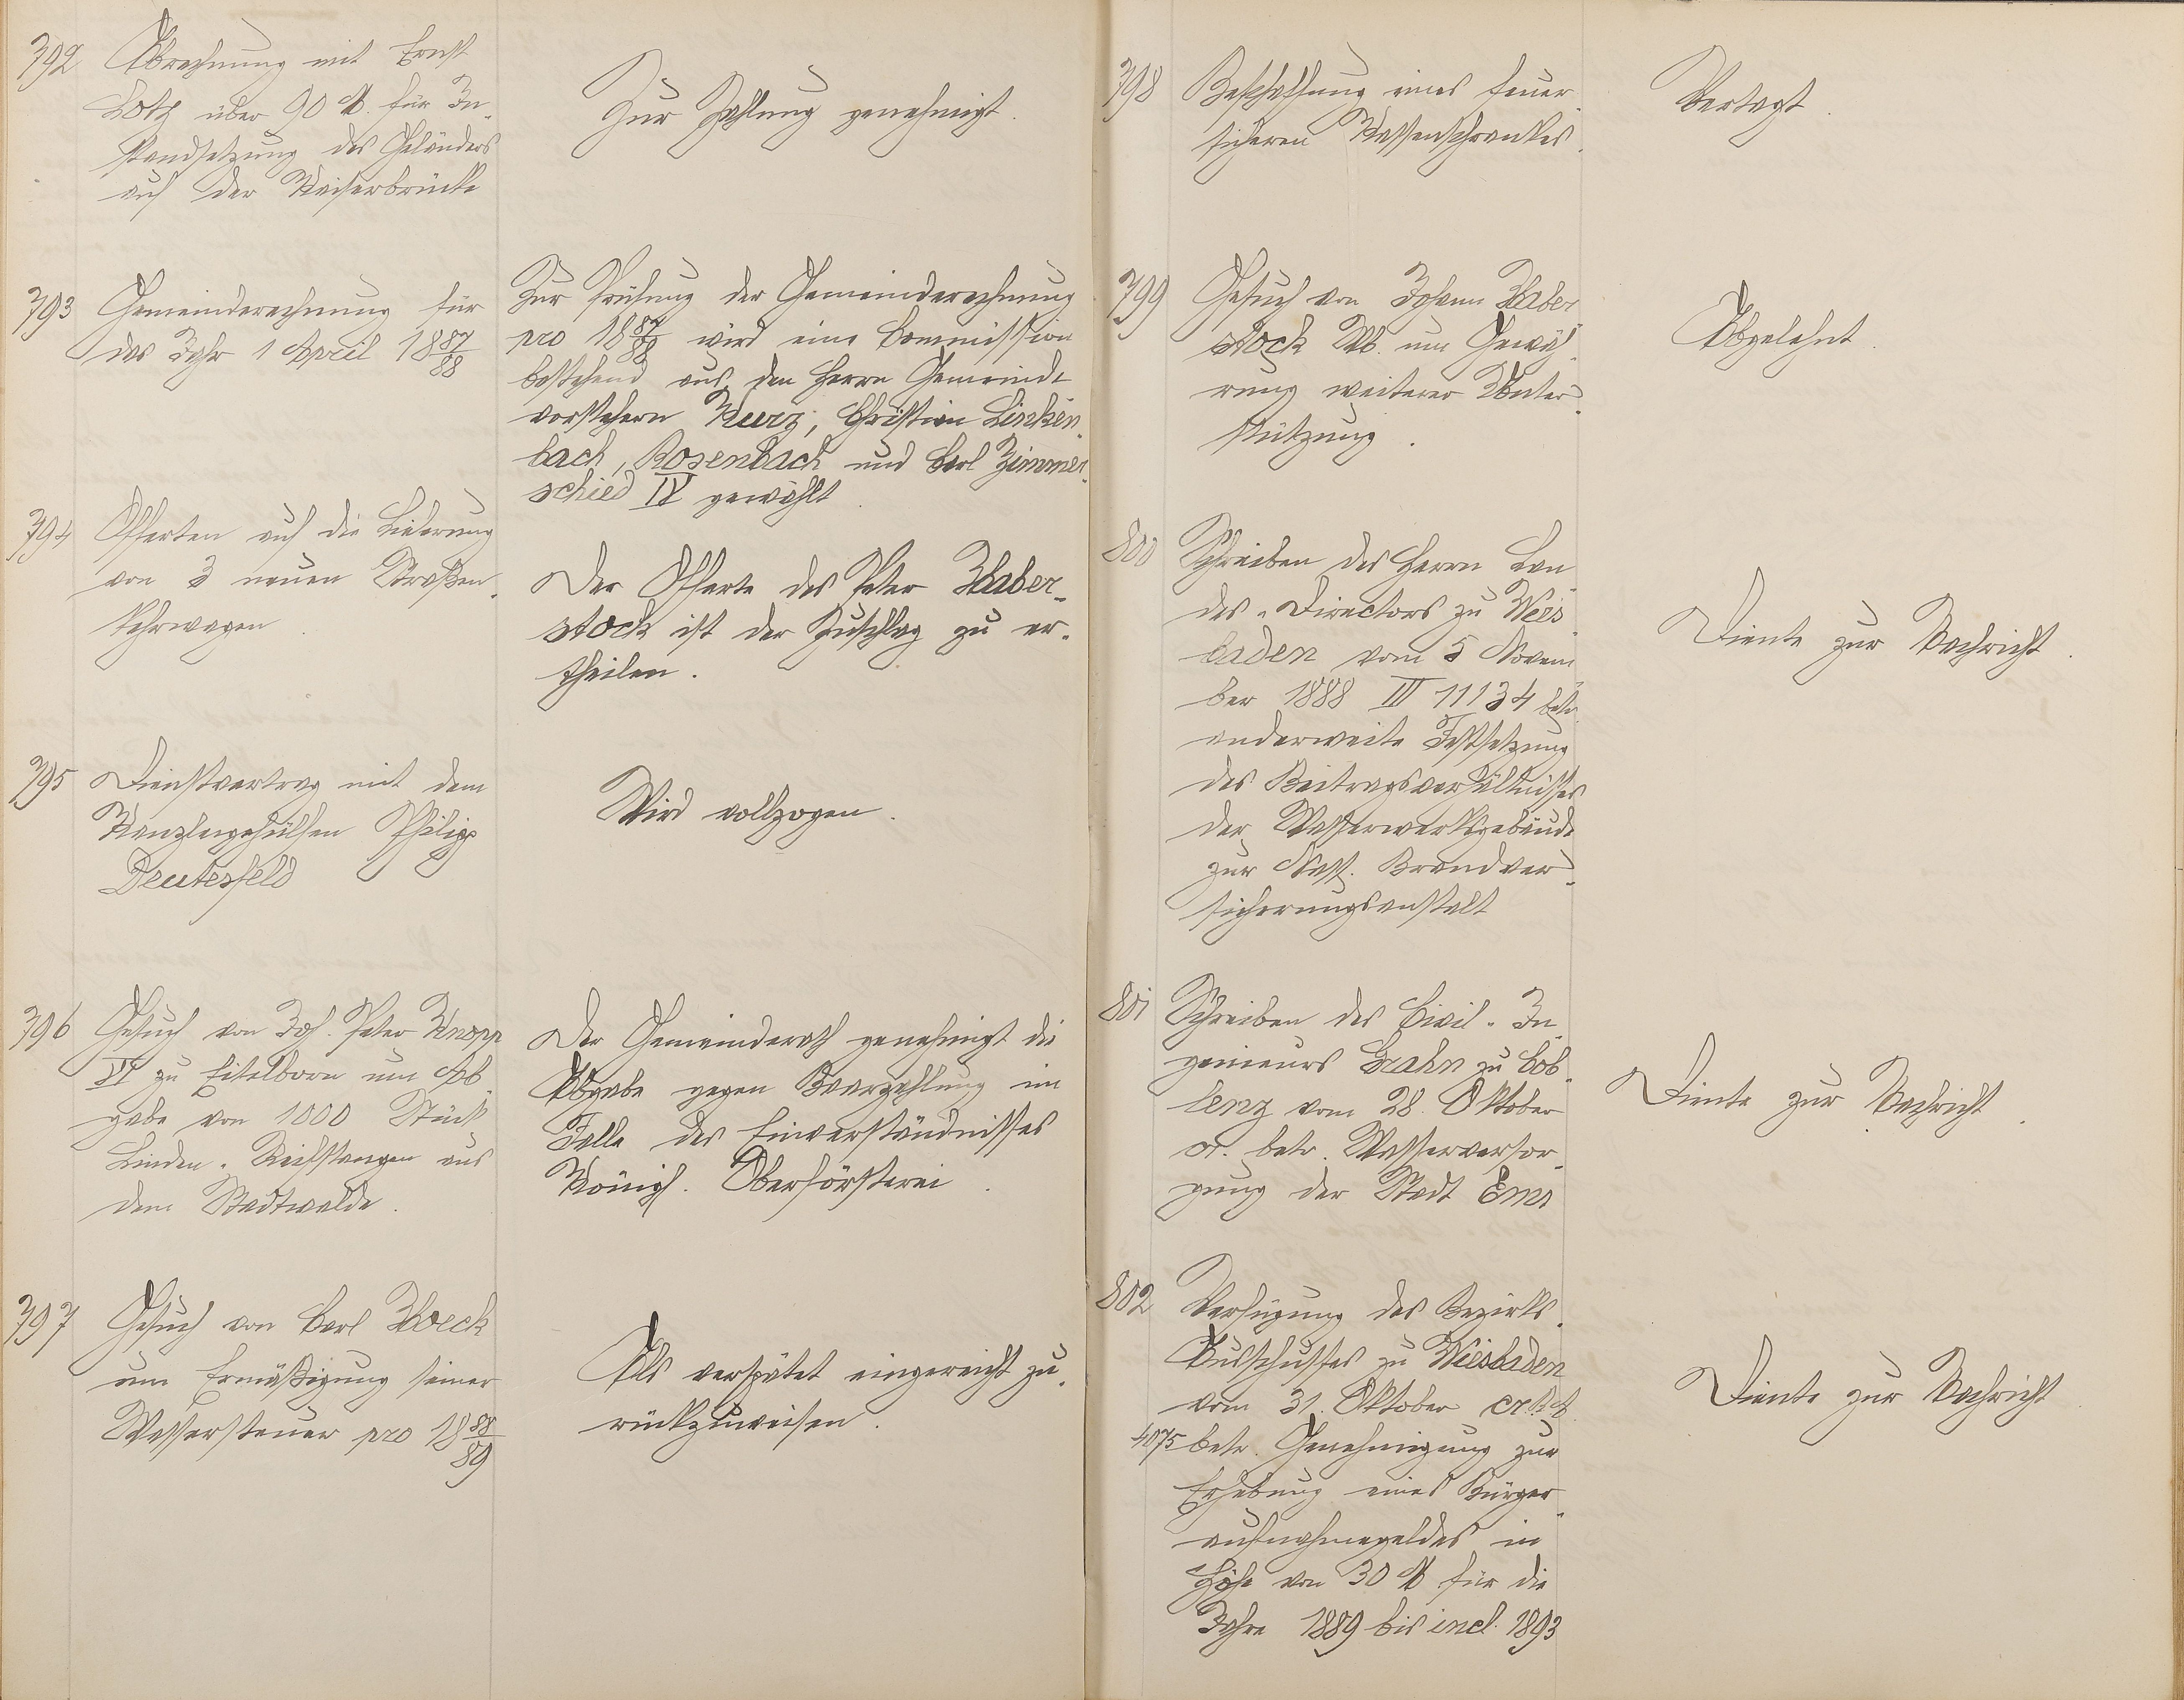 792 Abrechnung mit Ernst
Lotz über 90 M. für In-
standsetzung des Geländers
auf der Kaiserbrücke
Zur Zahlung genehmigt.
793 Gemeinderechnung für
das Jahr 1 April 1887/88
Zur Prüfung der Gemeinderechnung
pro 1887/88 wird eine Commission
bestehend aus den Herrn Gemeinde
vorstehern Kurz, Christian Linken-
bach, Rosenbach und Carl Zimmer-
schied IV gewählt
794 Offerten auf die Lieferung
von 3 neuen Straßen-
kehrwagen
Der Offerte des Peter Haber-
stock ist der Zuschlag zu er-
theilen.
795 Dienstvertrag mit dem
Kanzleigehülfen Philipp
Deutesfeld
Wird vollzogen.
796 Gesuch von Joh. Peter Knopp
VI zu Eitelborn um Ab-
gabe von 1000 Stück
Linden-Reifstangen aus
dem Stadtwalde.
Der Gemeinderath genehmigt die
Abgabe gegen Baarzahlung im
Falle des Einverständnisses
Königl. Oberförsterei.
797 Gesuch von Carl Hoeck
um Ermäßigung seiner
Wassersteuer pro 1888/89
Als verspätet eingereicht zu-
rückzuweisen.
798 Beschaffung eines feuer-
sicheren Kassenschrankes.
Vertagt.
799 Gesuch von Johann Haber
stock Wb. um Gewäh-
rung weiterer Unter-
stützung.
Abgelehnt.
800 Schreiben des Herrn Lan-
des-Directors zu Wies-
baden vom 5 Novem-
ber 1888 III 11134 betr.
anderweite Festsetzung
des Beitragsverhältnisses
der Wasserwerksgebäude
zur Nass. Brandver-
sicherungsanstalt
Diente zur Nachricht.
801 Schreiben des Civil-In-
genieurs Grahn zu Cob-
lenz vom 28. Oktober
cr. betr. Wasserversor-
gung der Stadt Ems
Diente zur Nachricht.
802 Verfügung des Bezirks-
Ausschusses zu Wiesbaden
vom 31. Oktober cr.
4075 betr. Genehmigung zur
Erhebung eines Bürger-
aufnahmegeldes in
Höhe von 30 M für die
Jahre 1889 bis incl. 1893
Diente zur Nachricht.